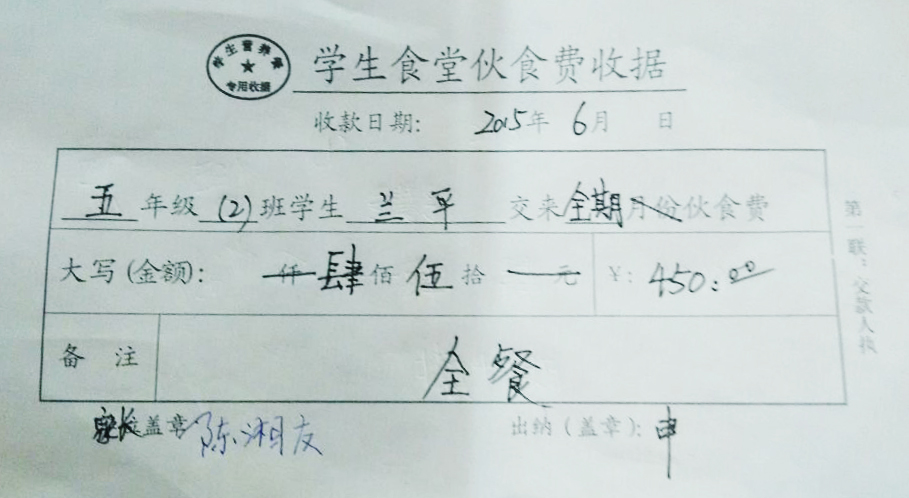 学生营养餐
专用收据
学生食堂伙食费收据
收款日期: 2015年 6月 日
五年级(2)班学生兰平交来全期月份伙食费
大写(金额): 仟肆佰伍拾元 ¥:450:00
备注 全餐
家长盖章 陈湘友 出纳(盖章): 申
第一联:交款人执